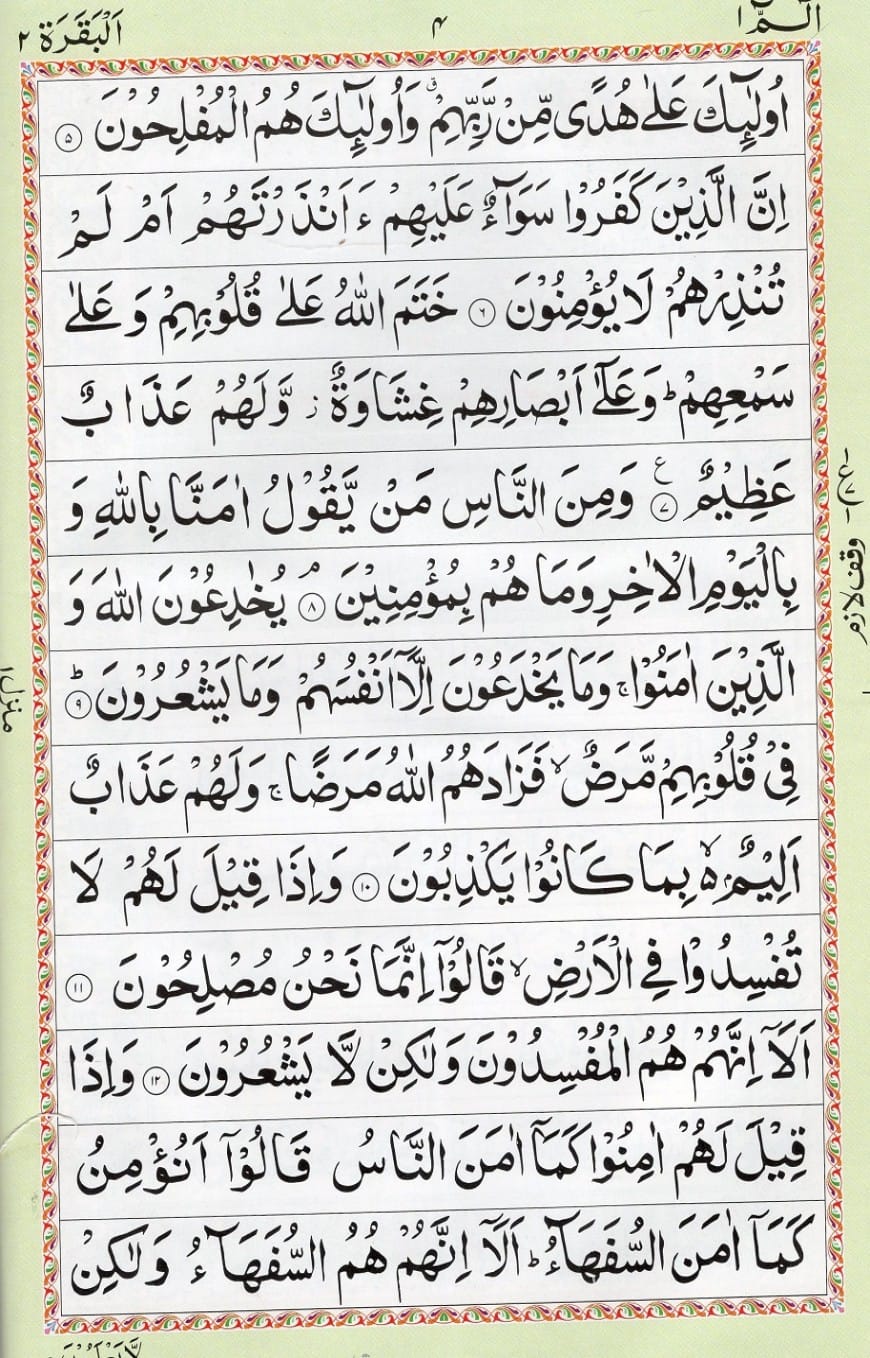 الٓـمّٓ ١
۴
اَلْبَقَرَة ٢
اُولٰٓئِكَ عَلٰى هُدًى مِّنْ رَّبِّهِمْ ۗ وَاُولٰٓئِكَ هُمُ الْمُفْلِحُوْنَ ۵
اِنَّ الَّذِيْنَ كَفَرُوْا سَوَآءٌ عَلَيْهِمْ ءَاَنْذَرْتَهُمْ اَمْ لَمْ
تُنْذِرْهُمْ لَا يُؤْمِنُوْنَ ۶ خَتَمَ اللّٰهُ عَلٰى قُلُوْبِهِمْ وَ عَلٰى
سَمْعِهِمْ ؕ وَ عَلٰٓى اَبْصَارِهِمْ غِشَاوَةٌ ز وَّ لَهُمْ عَذَابٌ
عَظِيْمٌ ۷ ع وَمِنَ النَّاسِ مَنْ يَّقُوْلُ اٰمَنَّا بِاللّٰهِ وَ
بِالْيَوْمِ الْاٰخِرِ وَمَا هُمْ بِمُؤْمِنِيْنَ ۘ ۸ يُخٰدِعُوْنَ اللّٰهَ وَ
وقف لازم
الَّذِيْنَ اٰمَنُوْا ۚ وَمَا يَخْدَعُوْنَ اِلَّآ اَنْفُسَهُمْ وَمَا يَشْعُرُوْنَ ؕ ۹
منزل ١
فِيْ قُلُوْبِهِمْ مَّرَضٌ ۙ فَزَادَهُمُ اللّٰهُ مَرَضًا ۚ وَلَهُمْ عَذَابٌ
اَلِيْمٌۢ ۙ۬ ۵ بِمَا كَانُوْا يَكْذِبُوْنَ ۱۰ وَاِذَا قِيْلَ لَهُمْ لَا
تُفْسِدُوْا فِي الْاَرْضِ ۙ قَالُوْٓا اِنَّمَا نَحْنُ مُصْلِحُوْنَ ۱۱
اَلَآ اِنَّهُمْ هُمُ الْمُفْسِدُوْنَ وَلٰكِنْ لَّا يَشْعُرُوْنَ ۱۲ وَاِذَا
قِيْلَ لَهُمْ اٰمِنُوْا كَمَآ اٰمَنَ النَّاسُ قَالُوْٓا اَنُؤْمِنُ
كَمَآ اٰمَنَ السُّفَهَآءُ ؕ اَلَآ اِنَّهُمْ هُمُ السُّفَهَآءُ وَلٰكِنْ